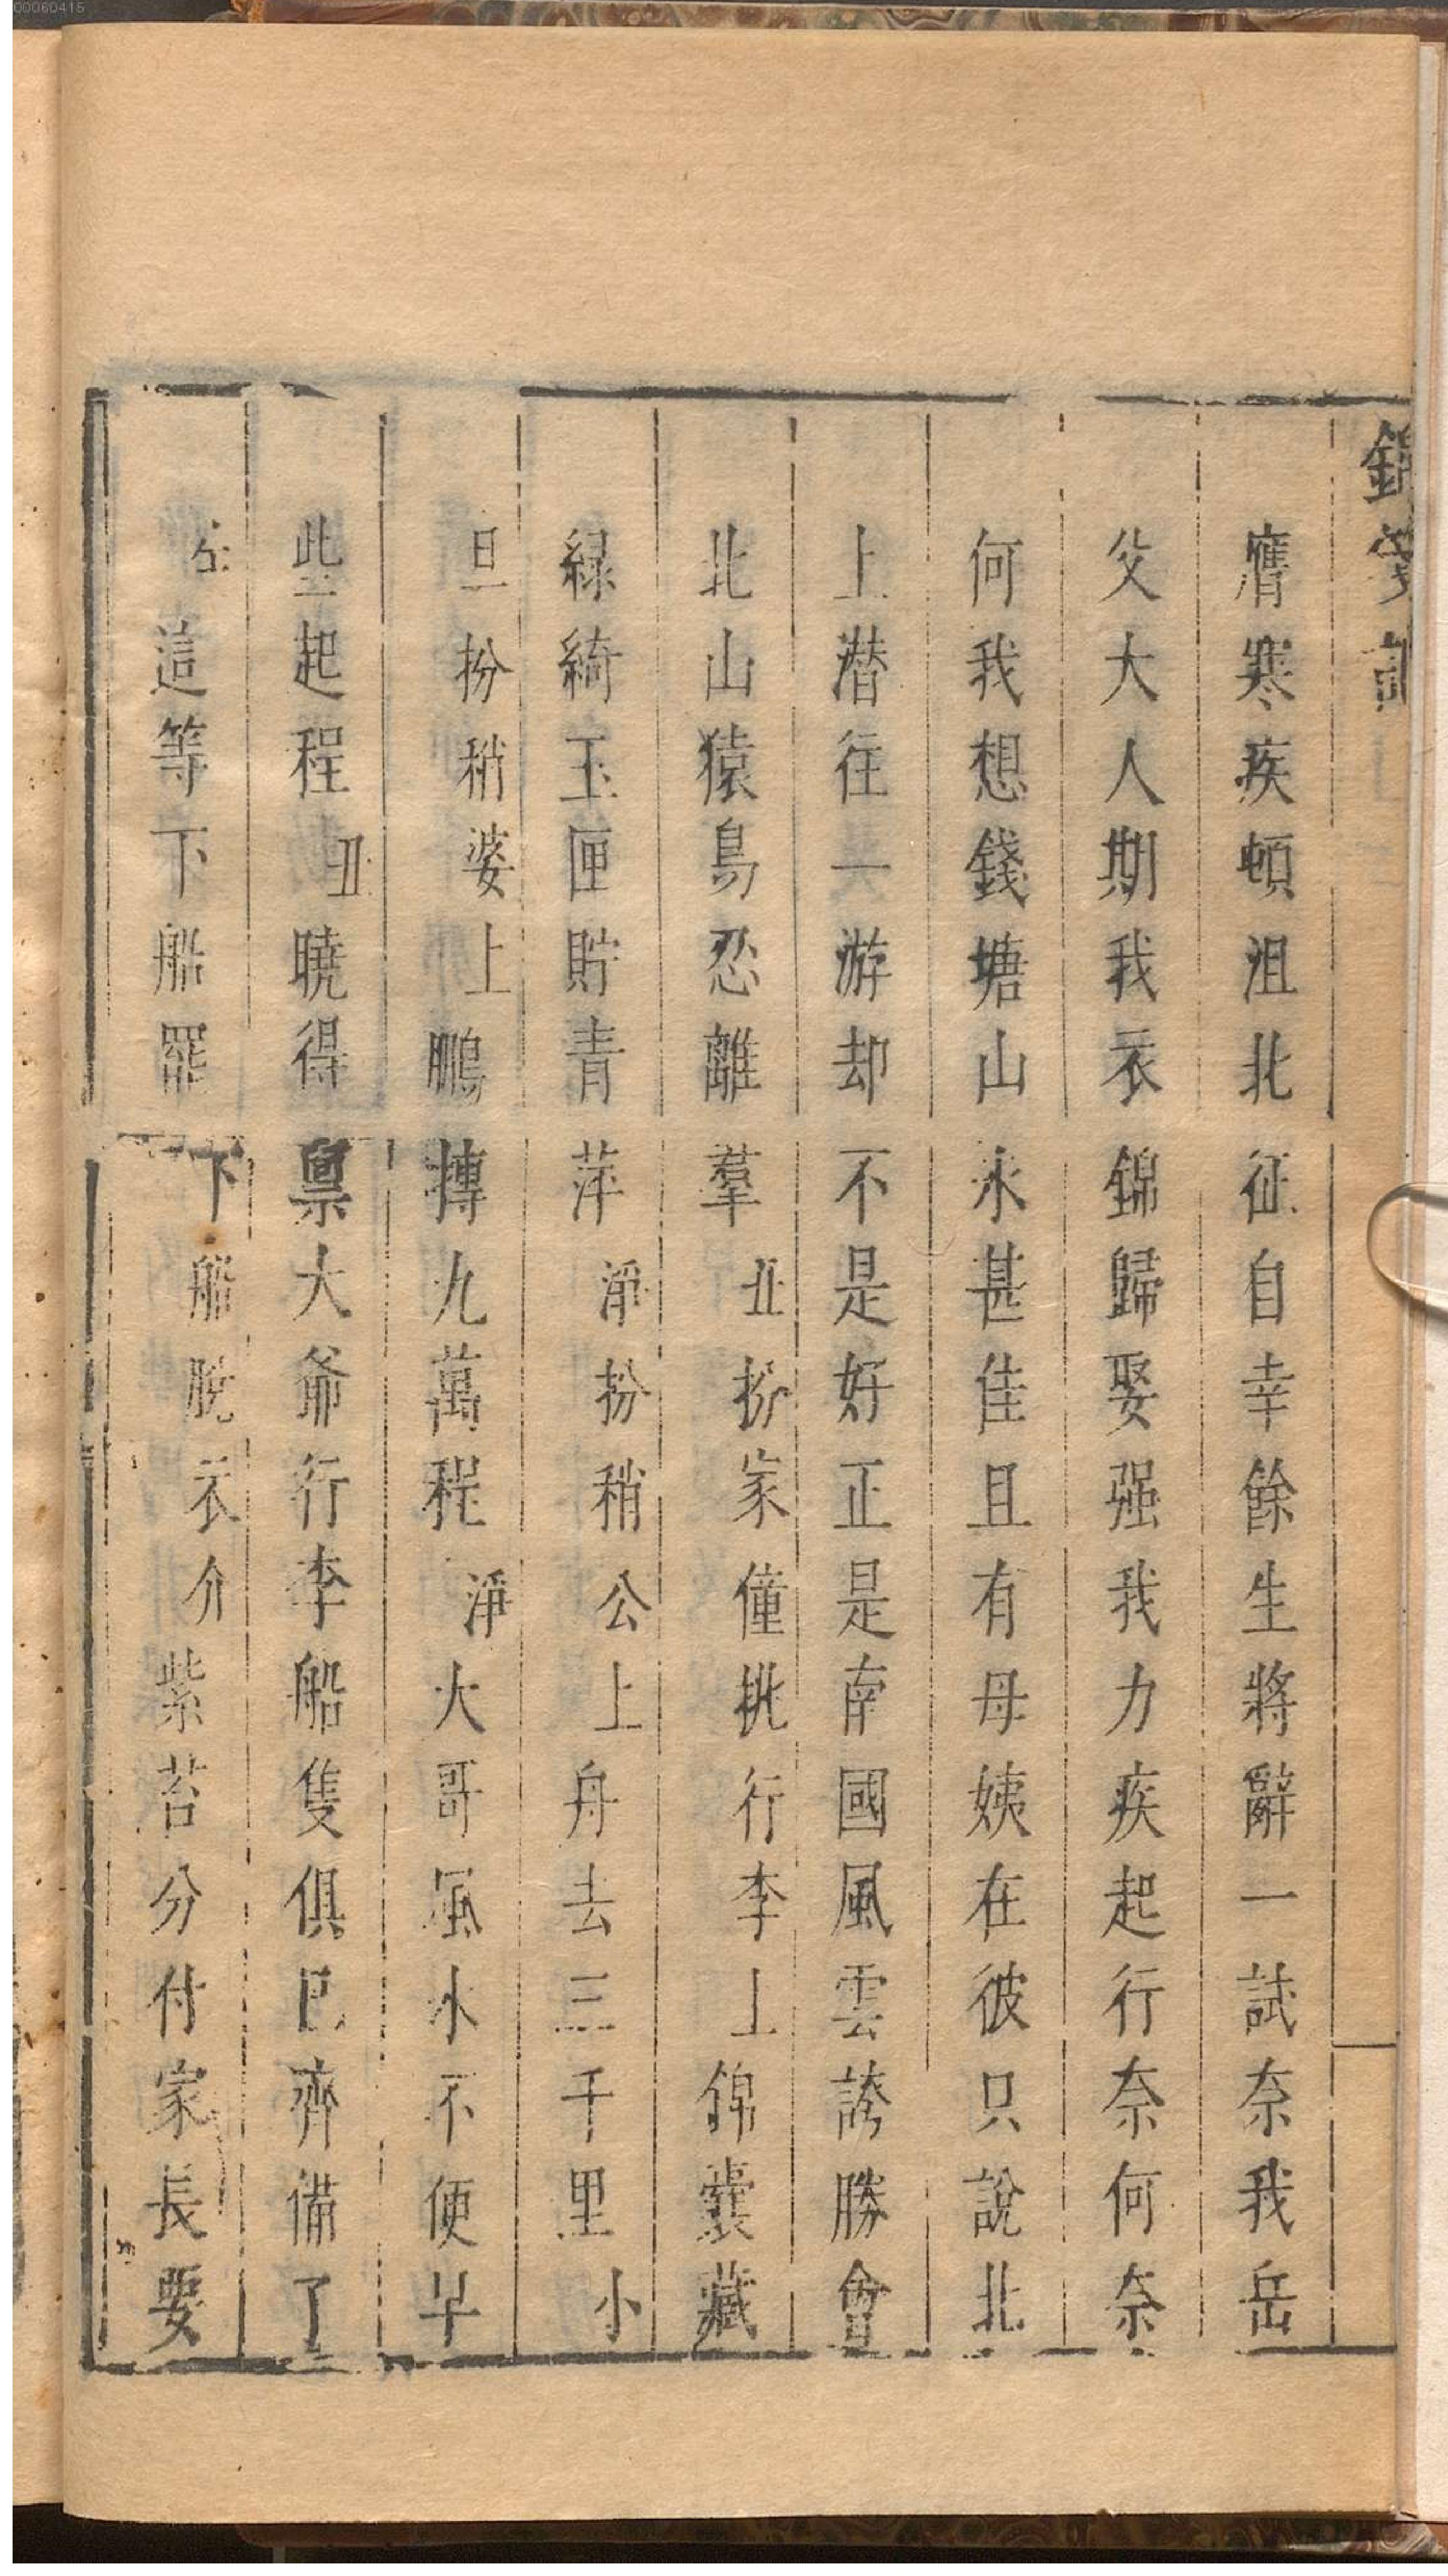 00060415
錦箋記
膺寒疾頓沮北征自幸餘生將辭一試奈我岳
父大人期我衣錦歸娶强我力疾起行奈何奈
何我想錢塘山水甚佳且有母姨在彼只說北
上潜往一游却不是好正是南國風雲誇勝會
北山猿鳥忍離羣丑扮家僮挑行李上錦囊藏
緑綺玉匣貯青萍淨扮稍公上舟去三千里小
旦扮稍婆上鵬摶九萬程淨大哥風水不便早
些起程丑曉得禀大爺行李船隻俱已齊備了
生這等下船罷下船脫衣介紫苔分付家長要